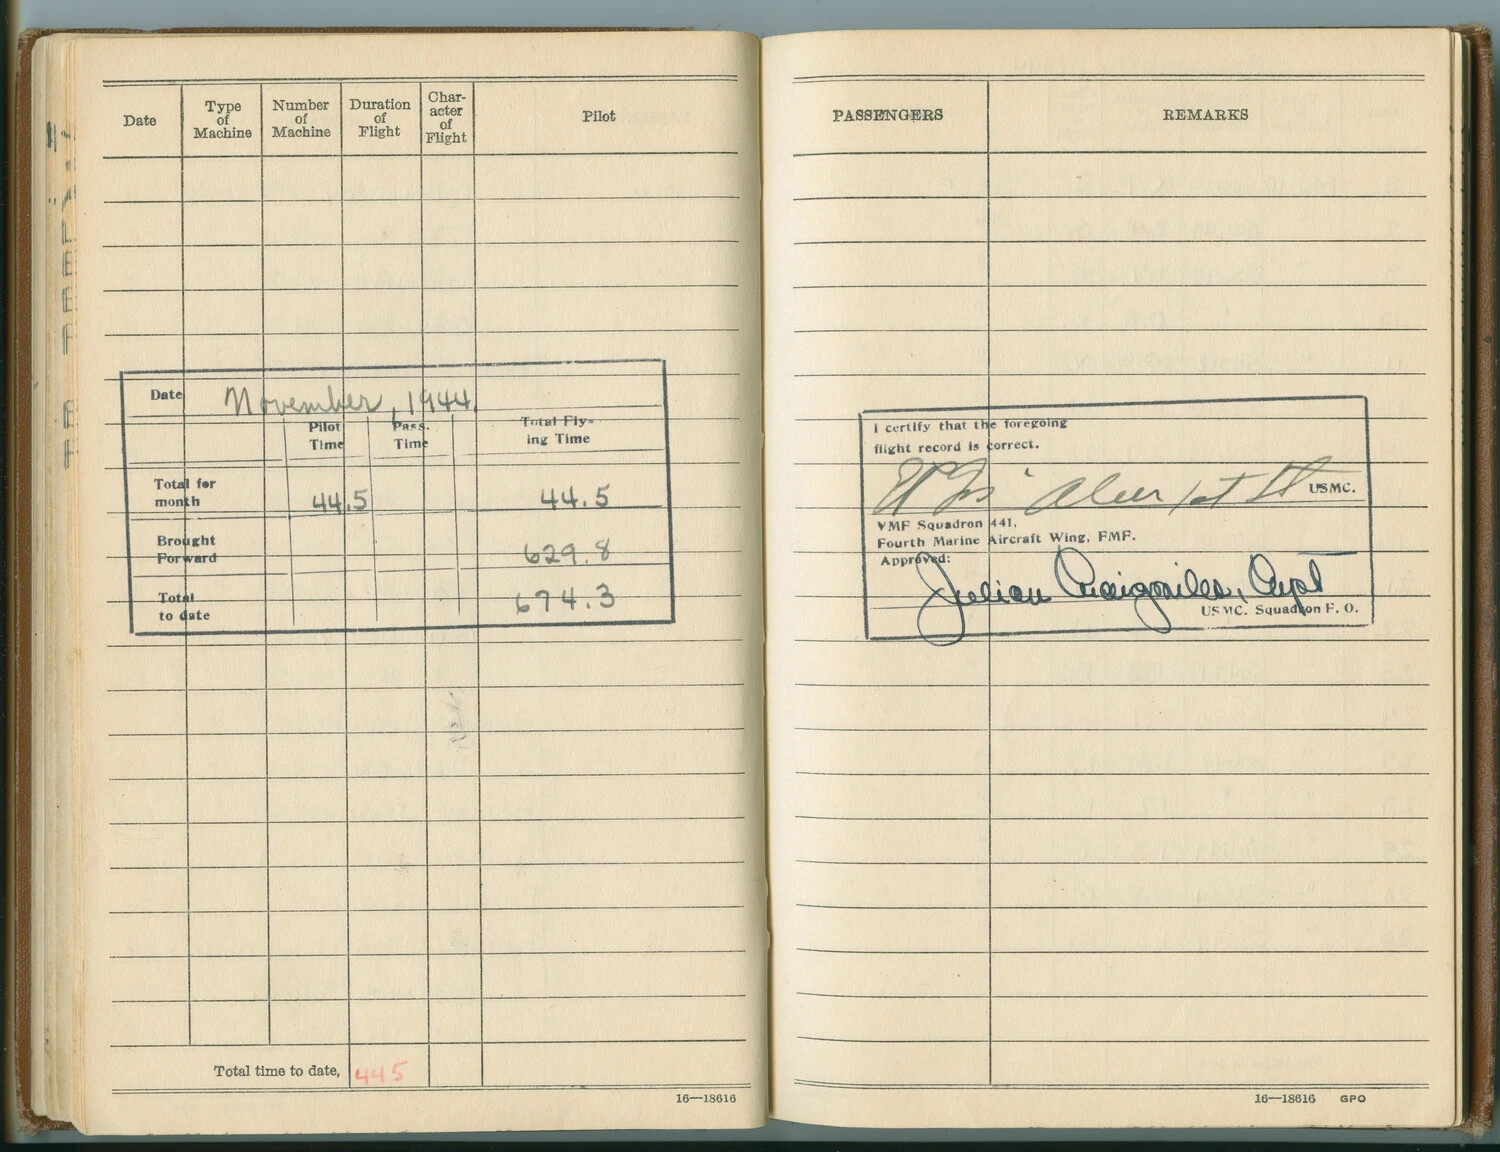 Date
Type of Machine
Number of Machine
Duration of Flight
Char-acter of Flight
Pilot
Date November, 1944.
Pilot Time
Pass. Time
Total Fly-ing Time
Total for month 44.5 44.5
Brought Forward 629.8
Total to date 674.3
Total time to date, 445
16—18616
PASSENGERS
REMARKS
I certify that the foregoing
flight record is correct.
1st Lt USMC.
VMF Squadron 441,
Fourth Marine Aircraft Wing, FMF.
Approved:
Julian Craigmiles, Capt
USMC. Squadron F. O.
16—18616 GPO